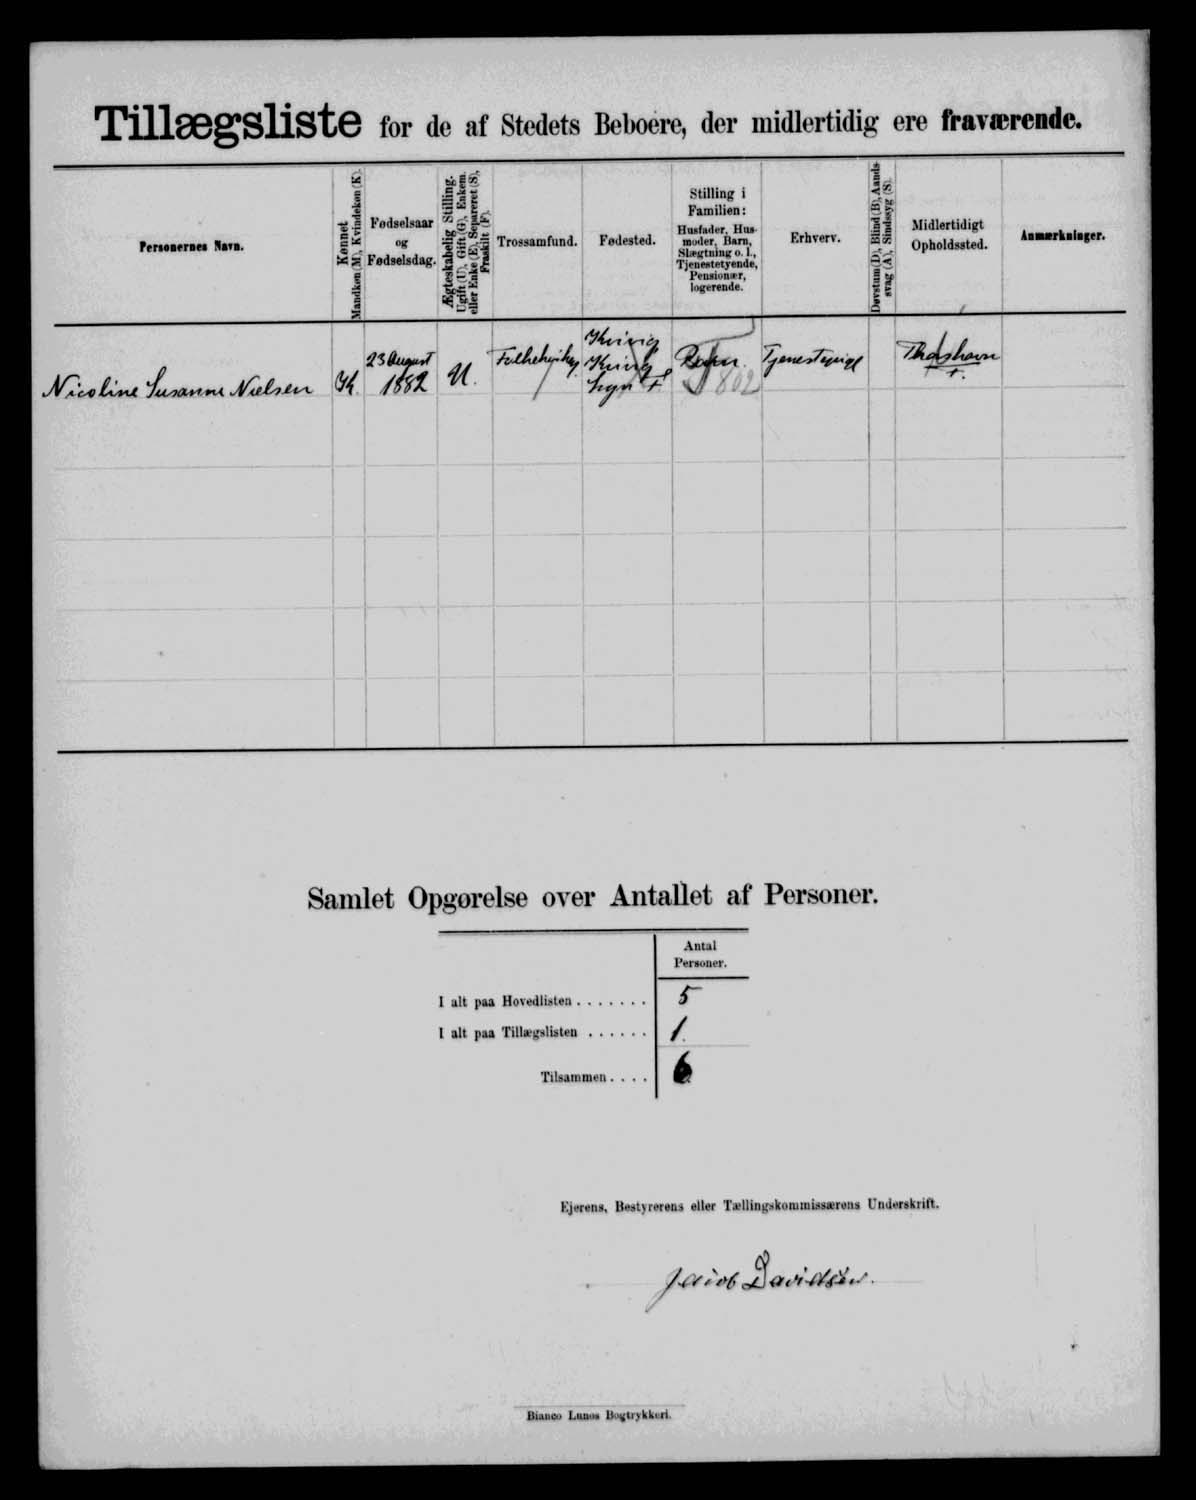 Tillægsliste for de af Stedets Beboere, der midlertidig ere fraværende.
Personernes Navn.
Kønnet
Mandkøn (M), Kvindekøn (K).
Fødselsaar
og
Fødselsdag.
Ægteskabelig Stilling.
Ugift (U), Gift (G), Enkem.
eller Enke (E), Separeret (S),
Fraskilt (F).
Trossamfund.
Fødested.
Stilling i
Familien:
Husfader, Hus-
moder, Barn,
Slægtning o. l.,
Tjenestetyende,
Pensionær,
logerende.
Erhverv.
Døvstum (D), Blind (B), Aands-
svag (A), Sindssyg (S).
Midlertidigt
Opholdssted.
Anmærkninger.
Nicoline Susanne Nielsen
K.
23 August
1882
U.
Kvivig
Kvivig
Barn.
802
Tjenestepige
Thorshavn
Samlet Opgørelse over Antallet af Personer.
Antal
Personer.
I alt paa Hovedlisten . . . . . . . 5
I alt paa Tillægslisten . . . . . . 1.
Tilsammen . . . . 6
Ejerens, Bestyrerens eller Tællingskommissærens Underskrift.
Jacob Davidsen.
Bianco Lunos Bogtrykkeri.